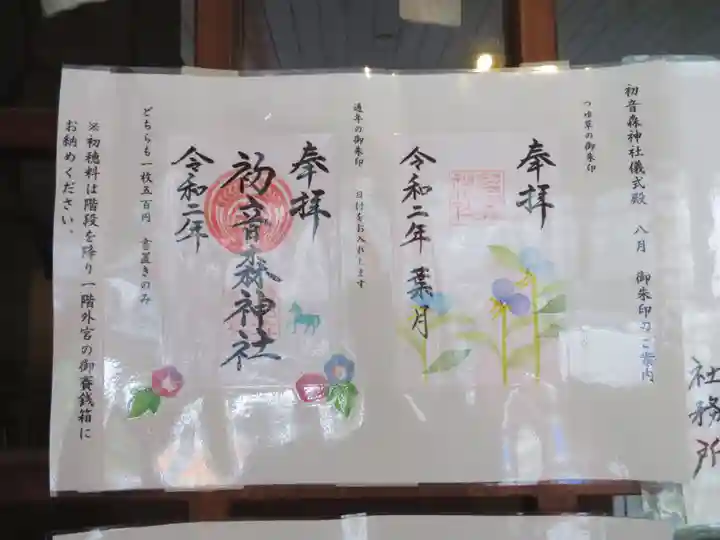 初音森神社儀式殿 八月 御朱印のご案内
つゆ草の御朱印
奉拝
令和二年 葉月
通年の御朱印 日付をお入れします
奉拝
初音森神社
令和二年
どちらも一枚五百円 書置きのみ
※初穂料は階段を降り一階外宮の御賽銭箱に
お納めください。
社務所